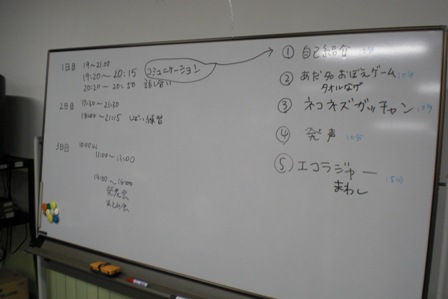 1日目 19～21:00
19:20～20:15
コミュニケーション
20:20～20:50 話し合い
2日目 19:30～21:30
しばい練習
3日目 10:00
11:00～13:00
発表会
① 自己紹介
② あだ名おぼえゲーム 10分
タオルなげ
③ ネコネズガッチャン 10分
④ 発声 10分
⑤ エコラジャー 15分
まわし